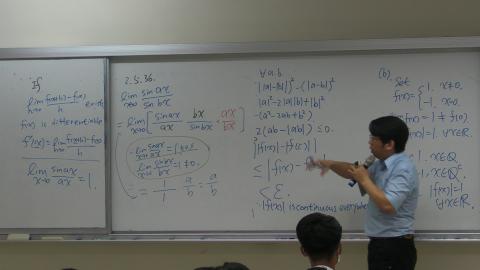 If
lim f(x+h)-f(x) / h exists
h→0
f(x) is differentiable
f'(x)=lim f(x+h)-f(x) / h
h→0
lim sin ax / ax = 1.
x→0
2.5.36.
lim sin ax / sin bx
x→0
=lim [ sin ax / ax · bx / sin bx · ax / bx ]
x→0
lim sin ax / ax = 1
lim sin bx / bx = 1 ≠ 0.
= 1/1 · a/b = a/b
∀ a.b
||a|-|b||² - (|a-b|)²
|a|²-2|a||b|+|b|²
-(a²-2ab+b²)
2(ab-|ab|) ≤ 0.
||f(x)|-|f(c)||
≤ |f(x)-
< ε.
|f(x)| is continuous everywhere
(b).
Set
f(x)= { 1, x≠0.
-1, x=0.
=1 ≠ f(0)
=1, ∀x∈R.
1, x∈Q.
|f(x)|=1
∀x∈R.